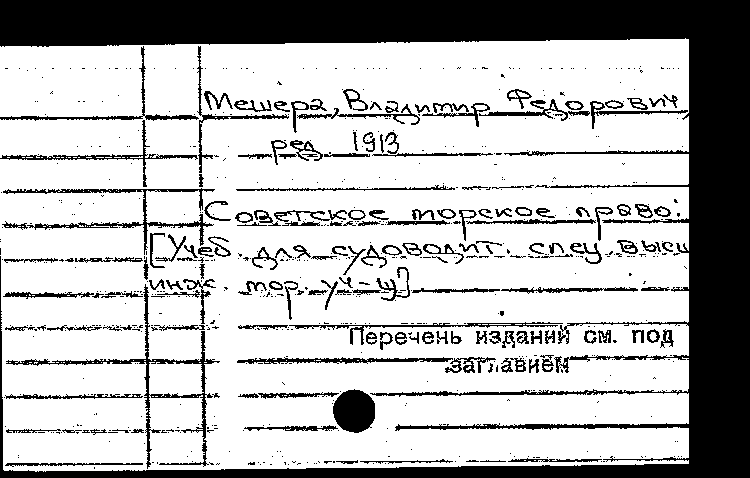 Мешера, Владимир Федорович,
ред. 1913
Советское морское право:
[Учеб. для судоводит. спец. высш
инж. мор. уч-щ]
Перечень изданий см. под
заглавием